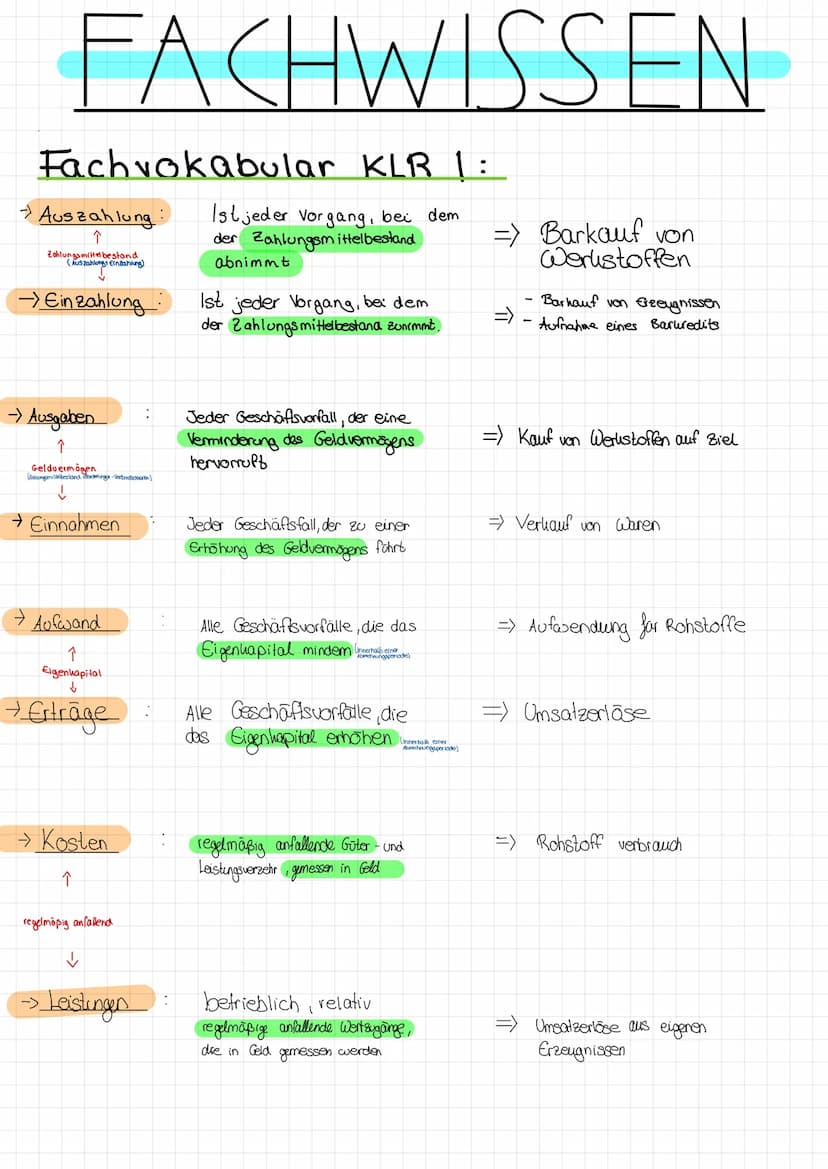 FACHWISSEN
Fachvokabular KLR 1:
→ Auszahlung :
Ist jeder Vorgang, bei dem
der Zahlungsmittelbestand
abnimmt
=> Barkauf von
Werkstoffen
↑
Zahlungsmittelbestand
(Auszahlung Einzahlung)
↓
→ Einzahlung :
Ist jeder Vorgang, bei dem
der Zahlungsmittelbestand zunimmt.
=> - Barkauf von Erzeugnissen
- Aufnahme eines Barkredits
→ Ausgaben :
Jeder Geschäftsvorfall, der eine
Verminderung des Geldvermögens
hervorruft
=> Kauf von Werkstoffen auf Ziel
↑
Geldvermögen
↓
→ Einnahmen :
Jeder Geschäftsfall, der zu einer
Erhöhung des Geldvermögens führt
=> Verkauf von Waren
→ Aufwand :
Alle Geschäftsvorfälle, die das
Eigenkapital mindern (innerhalb einer
Abrechnungsperiode)
=> Aufwendung für Rohstoffe
↑
Eigenkapital
↓
→ Erträge :
Alle Geschäftsvorfälle, die
das Eigenkapital erhöhen (innerhalb einer
Abrechnungsperiode)
=> Umsatzerlöse
→ Kosten :
regelmäßig anfallende Güter- und
Leistungsverzehr, gemessen in Geld
=> Rohstoff verbrauch
↑
regelmäßig anfallend
↓
→ Leistungen :
betrieblich, relativ
regelmäßige anfallende Wertzugänge,
die in Geld gemessen werden
=> Umsatzerlöse aus eigenen
Erzeugnissen